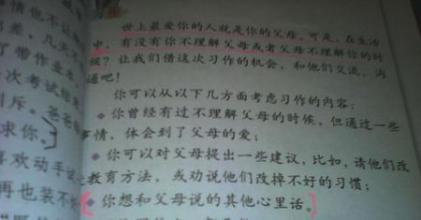 情他不让
世上最爱你的人就是你的父母。可是，在生活
中，有没有你不理解父母或者父母不理解你的时
候？让我们借这次习作的机会，和他们交流、沟
通吧！
你可以从以下几方面考虑习作的内容：
◆你曾经有过不理解父母的时候，但通过一些
事情，体会到了父母的爱；
◆你可以对父母提出一些建议，比如，请他们改
进教育方法，或劝说他们改掉不好的习惯；
◆你想和父母说的其他心里话。
差，几天
了带作业
次考试
斥。爸爸
求你。
喜欢动手
再也装不